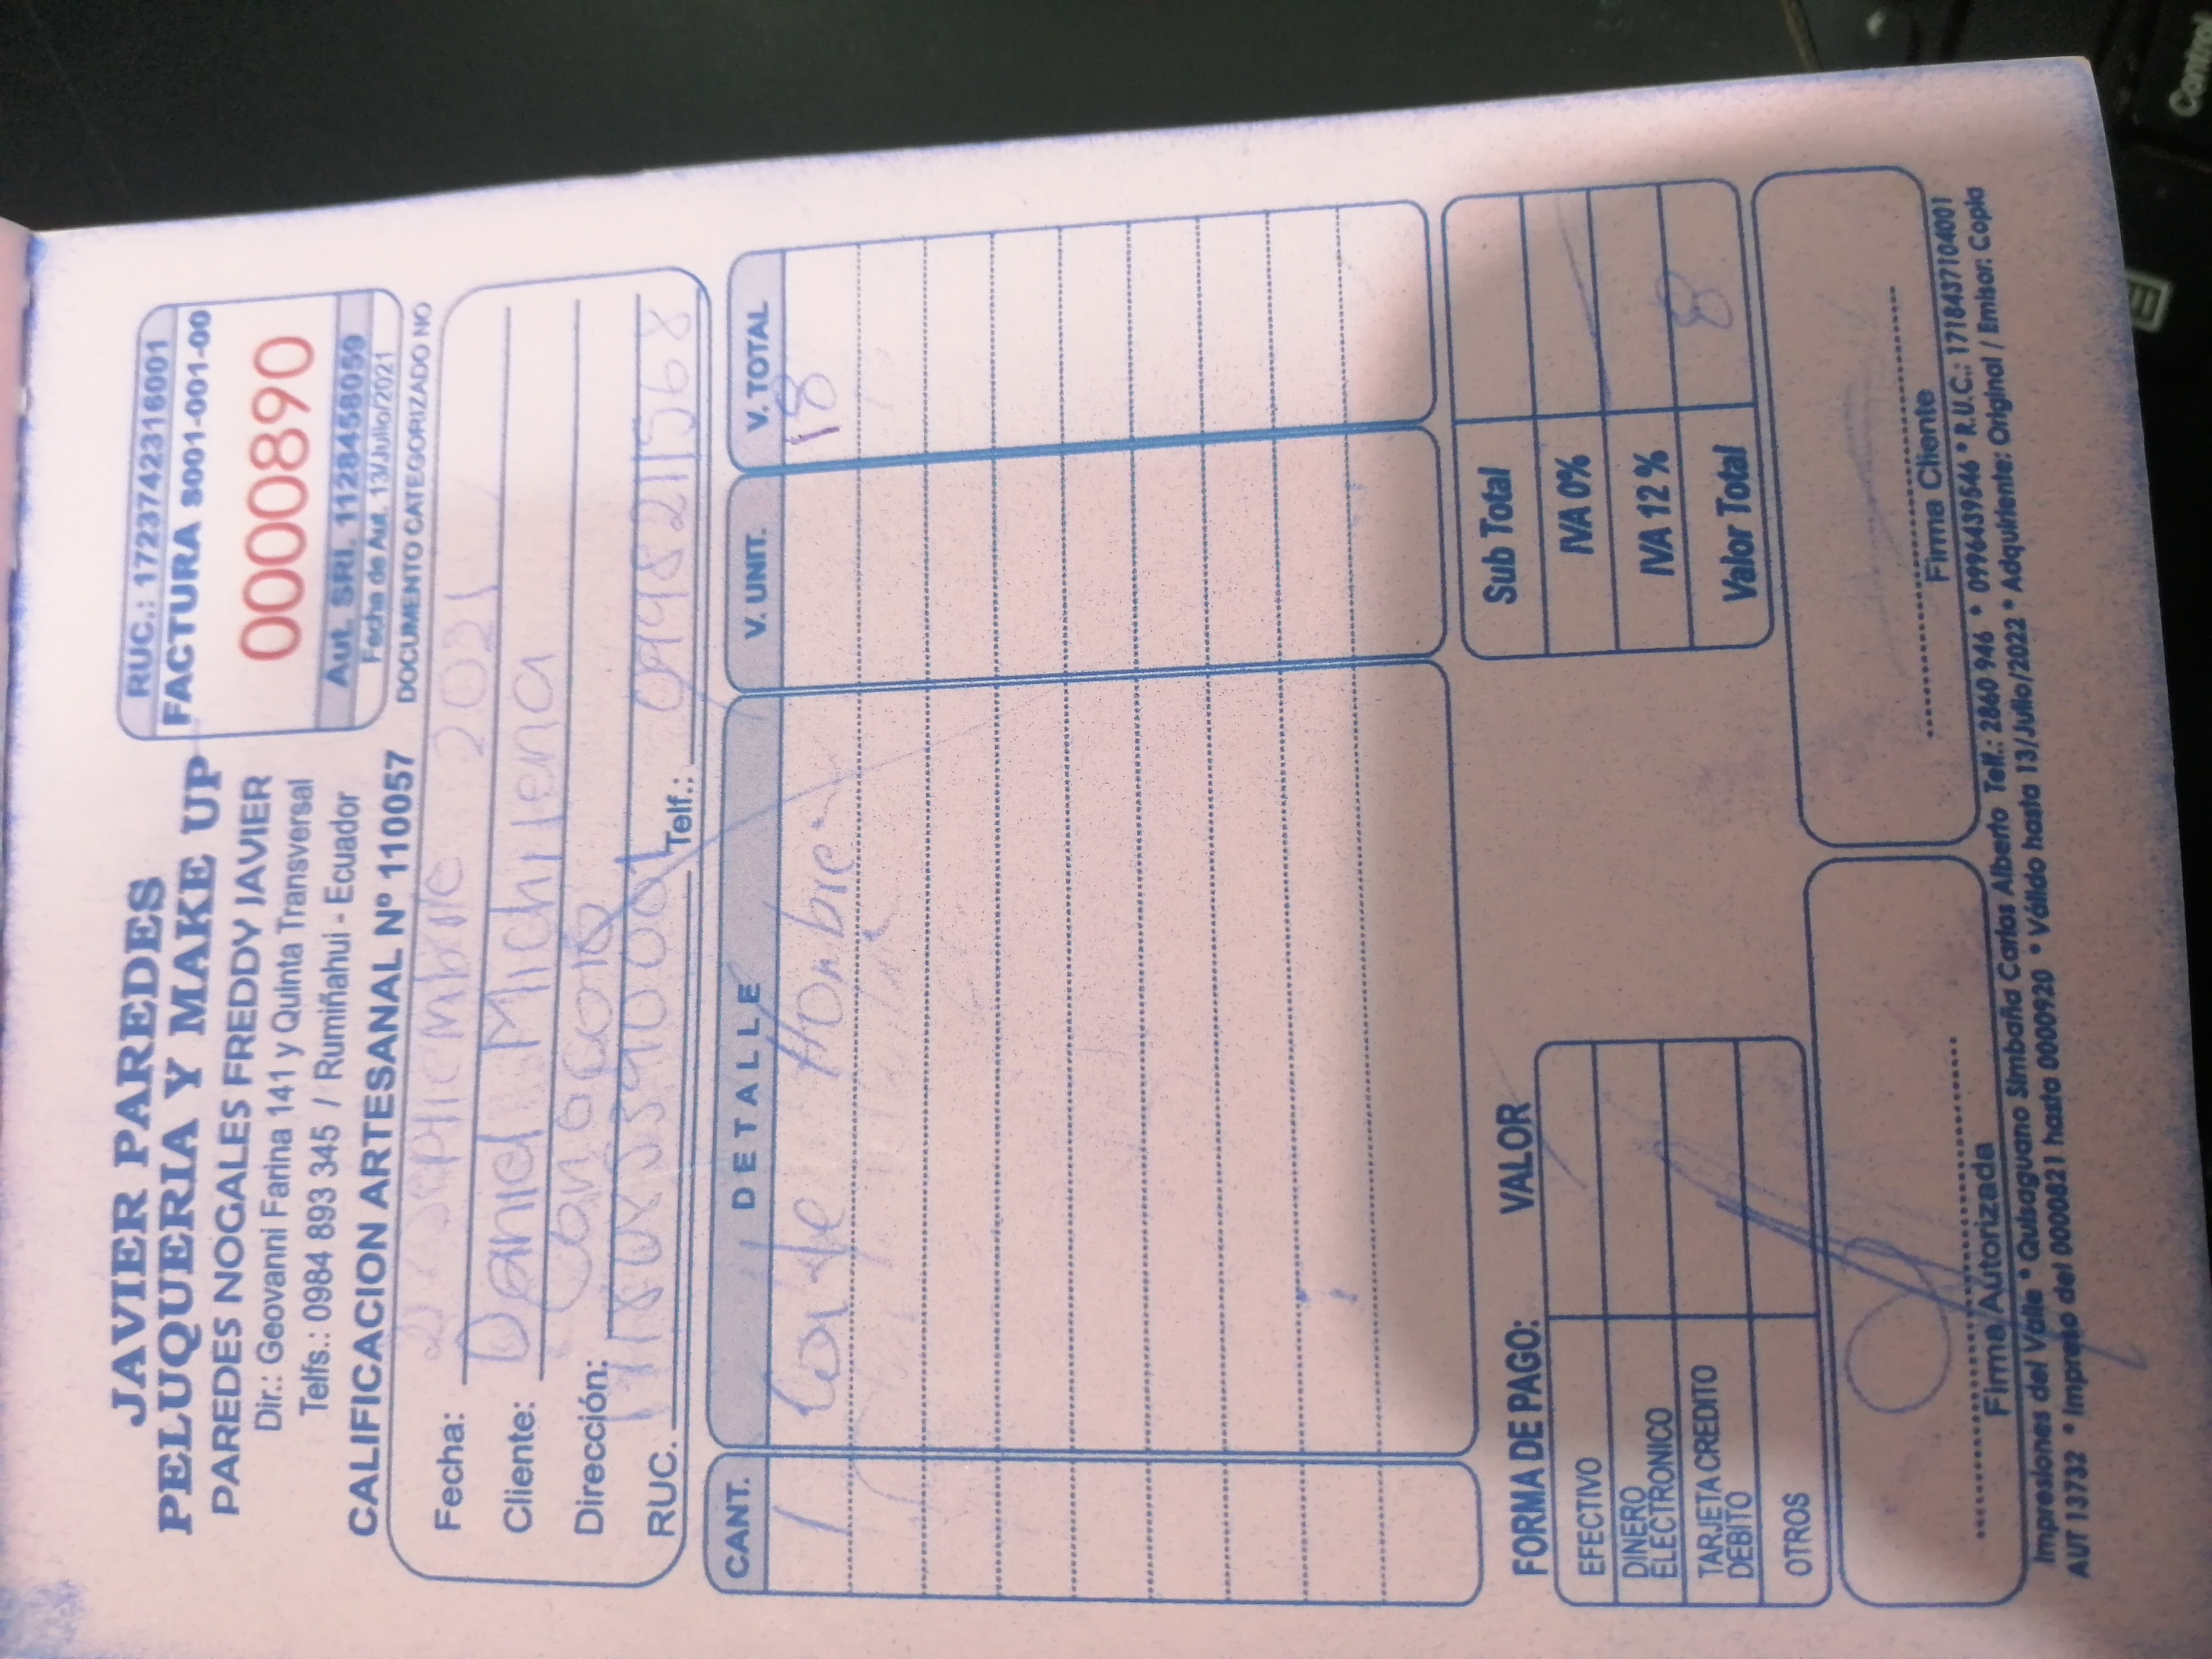 JAVIER PAREDES
PELUQUERIA Y MAKE UP
PAREDES NOGALES FREDDY JAVIER
Dir.: Geovanni Farina 141 y Quinta Transversal
Telfs.: 0984 893 345 / Rumiñahui - Ecuador
CALIFICACION ARTESANAL Nº 110057
RUC.: 1723742316001
FACTURA S001-001-00
0000890
Aut. SRI. 1128458059
Fecha de Aut. 13/Julio/2021
DOCUMENTO CATEGORIZADO NO
Fecha: 2021
Cliente: Daniel
Dirección:
RUC. Telf.: 0998211568
CANT. DETALLE V. UNIT. V. TOTAL
1 Corte Hombre 8
FORMA DE PAGO: VALOR
EFECTIVO
DINERO ELECTRONICO
TARJETA CREDITO DEBITO
OTROS
Sub Total
IVA 0%
IVA 12 %
Valor Total 8
Firma Autorizada
Firma Cliente
Impresiones del Valle * Quisaguano Simbaña Carlos Alberto Telf.: 2860 946 * 0996439546 * R.U.C.: 1718437104001
AUT 13732 * Impreso del 0000821 hasta 0000920 * Válido hasta 13/Julio/2022 * Adquiriente: Original / Emisor: Copia
Control